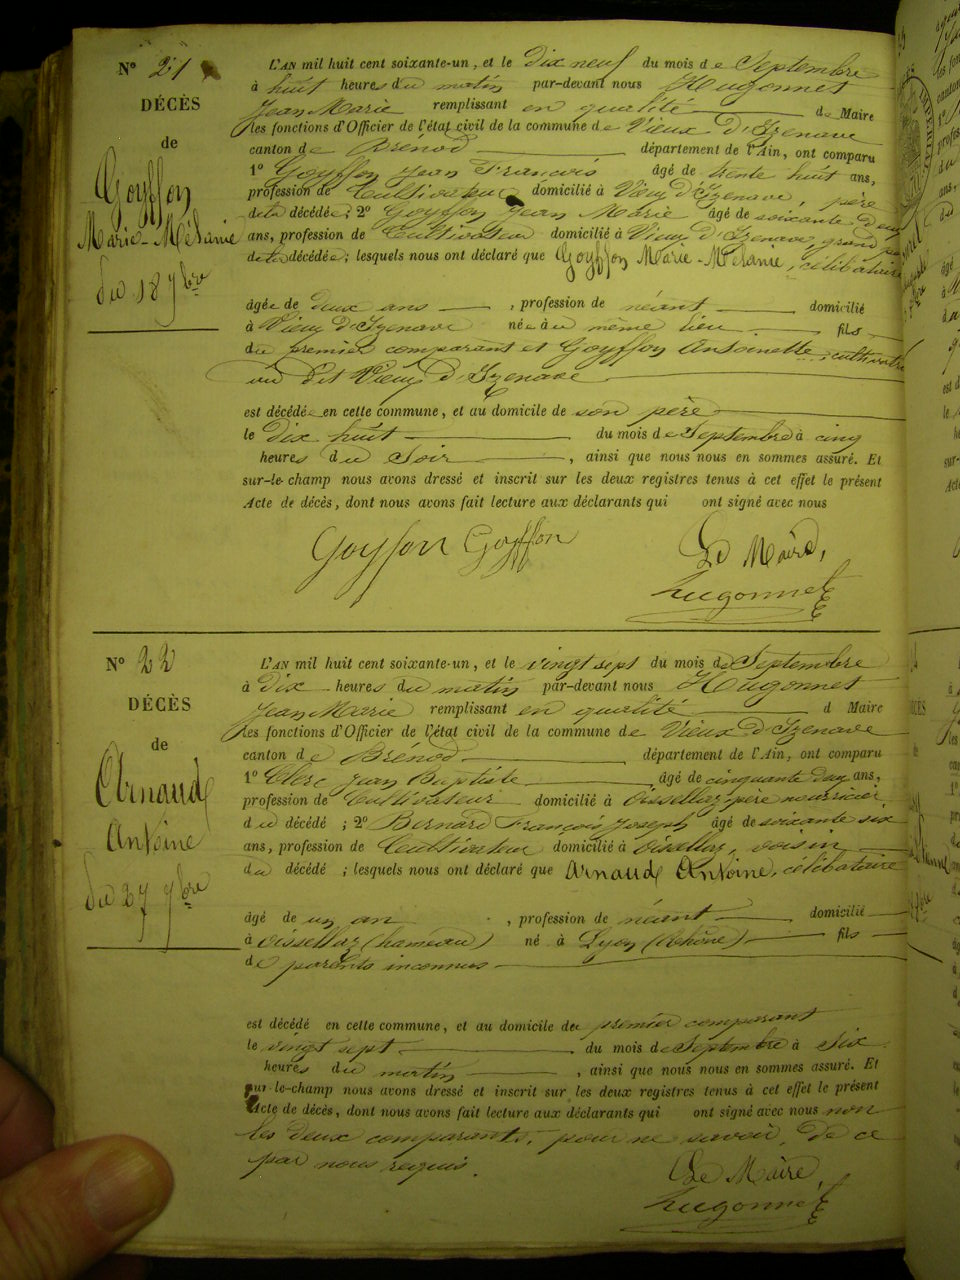 N° 21
DÉCÈS
de
Goyffon
Marie-Mélanie
du 18 7bre
L'AN mil huit cent soixante-un, et le dix neuf du mois de Septembre
à huit heures du matin par-devant nous Hugonnet
Jean Marie remplissant en qualité de Maire
les fonctions d'Officier de l'état civil de la commune de Vieux d'Izenave
canton de Brénod département de l'Ain, ont comparu
1° Goyffon Jean François âgé de trente huit ans,
profession de Cultivateur domicilié à Vieux d'Izenave, père
de la décédée; 2° Goyffon Jean Marie âgé de soixante deux
ans, profession de Cultivateur domicilié à Vieux d'Izenave, grand père
de la décédée; lesquels nous ont déclaré que Goyffon Marie-Mélanie, célibataire
âgée de deux ans, profession de néant domicilié
à Vieux d'Izenave née au même lieu fils
du premier comparant et Goyffon Antoinette, cultivatrice
au dit Vieux d'Izenave
est décédée en cette commune, et au domicile de son père
le dix huit du mois de Septembre à cinq
heures du Soir, ainsi que nous nous en sommes assuré. Et
sur-le-champ nous avons dressé et inscrit sur les deux registres tenus à cet effet le présent
Acte de décès, dont nous avons fait lecture aux déclarants qui ont signé avec nous
Goyffon Goyffon
Le Maire,
Hugonnet
N° 22
DÉCÈS
de
Arnaud
Antoine
du 27 7bre
L'AN mil huit cent soixante-un, et le vingt sept du mois de Septembre
à Dix heures du matin par-devant nous Hugonnet
Jean Marie remplissant en qualité d Maire
les fonctions d'Officier de l'état civil de la commune de Vieux d'Izenave
canton de Brénod département de l'Ain, ont comparu
1° Clerc Jean Baptiste âgé de cinquante deux ans,
profession de Cultivateur domicilié à Oissellaz, père nourricier
du décédé; 2° Bernard François Joseph âgé de soixante six
ans, profession de Cultivateur domicilié à Oisellaz, voisin
du décédé; lesquels nous ont déclaré que Arnaud Antoine, célibataire
âgé de un an, profession de néant domicilié
à Oissellaz (hameau) né à Lyon (Rhône) fils
de parents inconnus
est décédé en cette commune, et au domicile du premier comparant
le vingt sept du mois de Septembre à Six
heures du matin, ainsi que nous nous en sommes assuré. Et
sur-le-champ nous avons dressé et inscrit sur les deux registres tenus à cet effet le présent
Acte de décès, dont nous avons fait lecture aux déclarants qui ont signé avec nous non
les deux comparants, pour ne savoir, de ce
par nous requis.
Le Maire,
Hugonnet